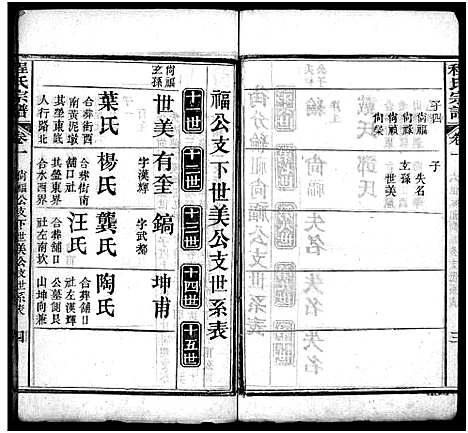 程氏宗譜
卷一
三
子四
尚福
尚祿
尚榮
子
失名
玄孫
世美
福公支下世美公支世系表
十一世
十二世
十三世
十四世
十五世
尚福
玄孫
世美
葉氏
合葬街西
南黃泥墩
其塋東底
人行路北
有奎
字漢輝
楊氏
合葬街南
舖口社
其塋東界
合水西界
鎬
字武都
龔氏
汪氏
合葬舖口
社左南坎
坤甫
陶氏
合葬舖口
社左漢輝
公墓側艮
山坤向兼
程氏宗譜
卷一
尚福公支下世美公支世系表
四